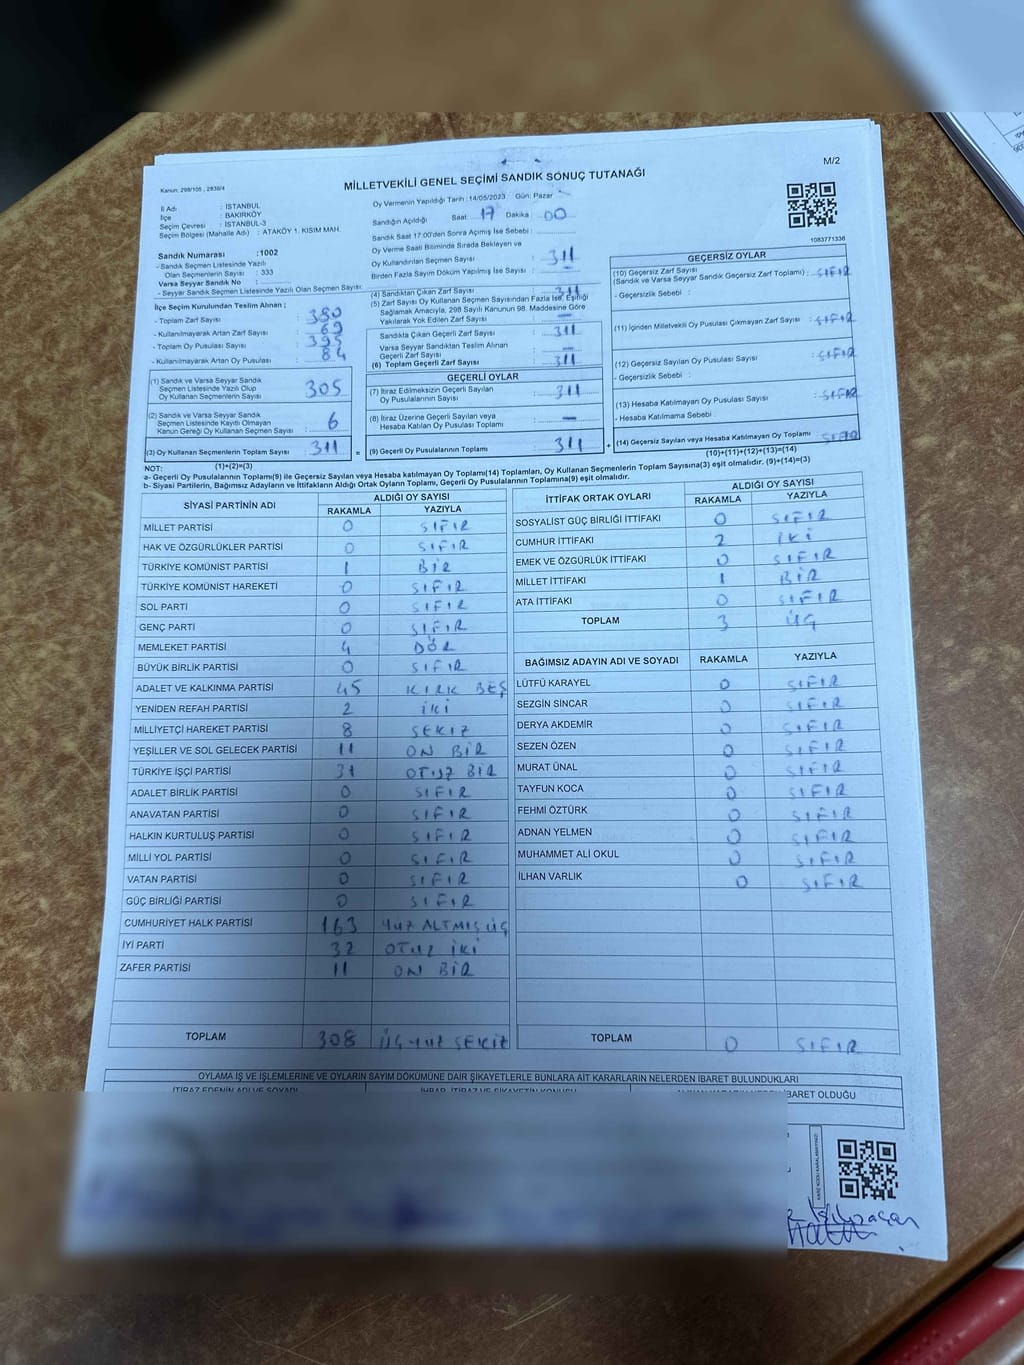 M/2
Kanun: 298/105 ; 2839/4
MİLLETVEKİLİ GENEL SEÇİMİ SANDIK SONUÇ TUTANAĞI
İl Adı : İSTANBUL
İlçe : BAKIRKÖY
Seçim Çevresi : İSTANBUL-3
Seçim Bölgesi (Mahalle Adı) : ATAKÖY 1. KISIM MAH.
Sandık Numarası :1002
- Sandık Seçmen Listesinde Yazılı
Olan Seçmenlerin Sayısı : 333
Varsa Seyyar Sandık No :
- Seyyar Sandık Seçmen Listesinde Yazılı Olan Seçmen Sayısı:
İlçe Seçim Kurulundan Teslim Alınan ;
- Toplam Zarf Sayısı : 380
- Kullanılmayarak Artan Zarf Sayısı : 69
- Toplam Oy Pusulası Sayısı : 395
- Kullanılmayarak Artan Oy Pusulası : 84
(1) Sandık ve Varsa Seyyar Sandık
Seçmen Listesinde Yazılı Olup
Oy Kullanan Seçmenlerin Sayısı : 305
(2) Sandık ve Varsa Seyyar Sandık
Seçmen Listesinde Kayıtlı Olmayan
Kanun Gereği Oy Kullanan Seçmen Sayısı : 6
(3) Oy Kullanan Seçmenlerin Toplam Sayısı : 311
(1)+(2)=(3)
Oy Vermenin Yapıldığı Tarih :14/05/2023 Gün: Pazar
Sandığın Açıldığı Saat: 17 Dakika : 00
Sandık Saat 17.00'den Sonra Açımış İse Sebebi :
Oy Verme Saati Bitiminde Sırada Bekleyen ve
Oy Kullandırılan Seçmen Sayısı : 311
Birden Fazla Sayım Döküm Yapılmış İse Sayısı : —
(4) Sandıktan Çıkan Zarf Sayısı : 311
(5) Zarf Sayısı Oy Kullanan Seçmen Sayısından Fazla İse, Eşitliği
Sağlamak Amacıyla, 298 Sayılı Kanunun 98. Maddesine Göre
Yakılarak Yok Edilen Zarf Sayısı : —
Sandıkta Çıkan Geçerli Zarf Sayısı : 311
Varsa Seyyar Sandıktan Teslim Alınan
Geçerli Zarf Sayısı : —
(6) Toplam Geçerli Zarf Sayısı : 311
GEÇERLİ OYLAR
(7) İtiraz Edilmeksizin Geçerli Sayılan
Oy Pusulalarının Sayısı : 311
(8) İtiraz Üzerine Geçerli Sayılan veya
Hesaba Katılan Oy Pusulası Toplamı : —
= (9) Geçerli Oy Pusulalarının Toplamı : 311 +
1083771336
GEÇERSİZ OYLAR
(10) Geçersiz Zarf Sayısı
(Sandık ve Varsa Seyyar Sandık Geçersiz Zarf Toplamı) : SIFIR
- Geçersizlik Sebebi :
(11) İçinden Milletvekili Oy Pusulası Çıkmayan Zarf Sayısı : SIFIR
(12) Geçersiz Sayılan Oy Pusulası Sayısı : SIFIR
- Geçersizlik Sebebi :
(13) Hesaba Katılmayan Oy Pusulası Sayısı : SIFIR
- Hesaba Katılmama Sebebi :
(14) Geçersiz Sayılan veya Hesaba Katılmayan Oy Toplamı : SIFIR
(10)+(11)+(12)+(13)=(14)
NOT:
a- Geçerli Oy Pusulalarının Toplamı(9) ile Geçersiz Sayılan veya Hesaba katılmayan Oy Toplamı(14) Toplamları, Oy Kullanan Seçmenlerin Toplam Sayısına(3) eşit olmalıdır. (9)+(14)=(3)
b- Siyasi Partilerin, Bağımsız Adayların ve İttifakların Aldığı Ortak Oyların Toplamı, Geçerli Oy Pusulalarının Toplamına(9) eşit olmalıdır.
SİYASİ PARTİNİN ADI ALDIĞI OY SAYISI
RAKAMLA YAZIYLA
MİLLET PARTİSİ 0 SIFIR
HAK VE ÖZGÜRLÜKLER PARTİSİ 0 SIFIR
TÜRKİYE KOMÜNİST PARTİSİ 1 BİR
TÜRKİYE KOMÜNİST HAREKETİ 0 SIFIR
SOL PARTİ 0 SIFIR
GENÇ PARTİ 0 SIFIR
MEMLEKET PARTİSİ 4 DÖR
BÜYÜK BİRLİK PARTİSİ 0 SIFIR
ADALET VE KALKINMA PARTİSİ 45 KIRK BEŞ
YENİDEN REFAH PARTİSİ 2 İKİ
MİLLİYETÇİ HAREKET PARTİSİ 8 SEKİZ
YEŞİLLER VE SOL GELECEK PARTİSİ 11 ON BİR
TÜRKİYE İŞÇİ PARTİSİ 31 OTUZ BİR
ADALET BİRLİK PARTİSİ 0 SIFIR
ANAVATAN PARTİSİ 0 SIFIR
HALKIN KURTULUŞ PARTİSİ 0 SIFIR
MİLLİ YOL PARTİSİ 0 SIFIR
VATAN PARTİSİ 0 SIFIR
GÜÇ BİRLİĞİ PARTİSİ 0 SIFIR
CUMHURİYET HALK PARTİSİ 163 YÜZ ALTMIŞ ÜÇ
İYİ PARTİ 32 OTUZ İKİ
ZAFER PARTİSİ 11 ON BİR
TOPLAM 308 ÜÇ YÜZ SEKİZ
İTTİFAK ORTAK OYLARI ALDIĞI OY SAYISI
RAKAMLA YAZIYLA
SOSYALİST GÜÇ BİRLİĞİ İTTİFAKI 0 SIFIR
CUMHUR İTTİFAKI 2 İKİ
EMEK VE ÖZGÜRLÜK İTTİFAKI 0 SIFIR
MİLLET İTTİFAKI 1 BİR
ATA İTTİFAKI 0 SIFIR
TOPLAM 3 ÜÇ
BAĞIMSIZ ADAYIN ADI VE SOYADI RAKAMLA YAZIYLA
LÜTFÜ KARAYEL 0 SIFIR
SEZGİN SİNCAR 0 SIFIR
DERYA AKDEMİR 0 SIFIR
SEZEN ÖZEN 0 SIFIR
MURAT ÜNAL 0 SIFIR
TAYFUN KOCA 0 SIFIR
FEHMİ ÖZTÜRK 0 SIFIR
ADNAN YELMEN 0 SIFIR
MUHAMMET ALİ OKUL 0 SIFIR
İLHAN VARLIK 0 SIFIR
TOPLAM 0 SIFIR
OYLAMA İŞ VE İŞLEMLERİNE VE OYLARIN SAYIM DÖKÜMÜNE DAİR ŞİKAYETLERLE BUNLARA AİT KARARLARIN NELERDEN İBARET BULUNDUKLARI
İTİRAZ EDENİN ADI VE SOYADI İHBAR, İTİRAZ VE ŞİKAYETİN KONUSU İBARET OLDUĞU